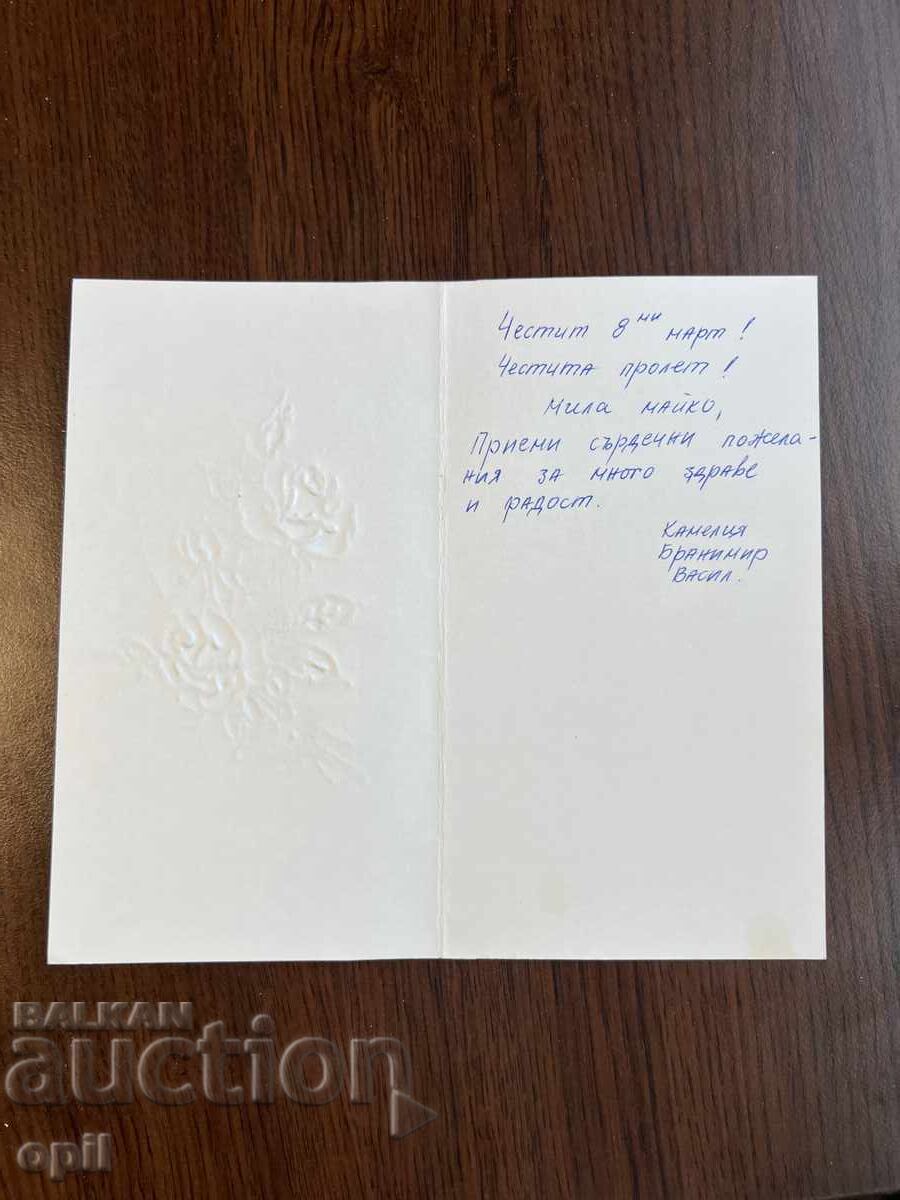 Честит 8ми март!
Честита пролет!
Мила майко,
Приеми сърдечни пожела-
ния за много здраве
и радост.
Камелия
Бранимир
Васил.
BALKAN
auction
opil